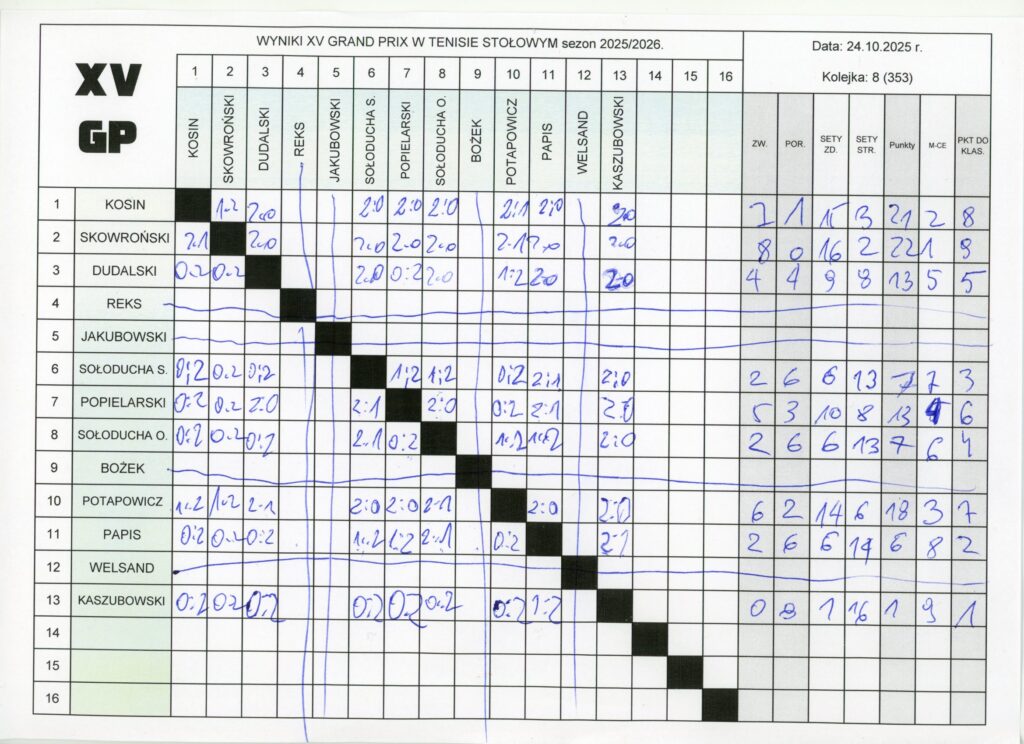 WYNIKI XV GRAND PRIX W TENISIE STOŁOWYM sezon 2025/2026.
Data: 24.10.2025 r.
Kolejka: 8 (353)
XV
GP
1 2 3 4 5 6 7 8 9 10 11 12 13 14 15 16
KOSIN SKOWROŃSKI DUDALSKI REKS JAKUBOWSKI SOŁODUCHA S. POPIELARSKI SOŁODUCHA O. BOŻEK POTAPOWICZ PAPIS WELSAND KASZUBOWSKI
ZW. POR. SETY ZD. SETY STR. Punkty M-CE PKT DO KLAS.
1 KOSIN 1:2 2:0 2:0 2:0 2:0 2:1 2:0 2:0 7 1 15 3 21 2 8
2 SKOWROŃSKI 2:1 2:0 2:0 2:0 2:0 2:1 2:0 2:0 8 0 16 2 22 1 9
3 DUDALSKI 0:2 0:2 2:0 0:2 2:0 1:2 2:0 2:0 4 4 9 8 13 5 5
4 REKS
5 JAKUBOWSKI
6 SOŁODUCHA S. 0:2 0:2 0:2 1:2 1:2 0:2 2:1 2:0 2 6 6 13 7 7 3
7 POPIELARSKI 0:2 0:2 2:0 2:1 2:0 0:2 2:1 2:0 5 3 10 8 13 4 6
8 SOŁODUCHA O. 0:2 0:2 0:2 2:1 0:2 1:2 1:2 2:0 2 6 6 13 7 6 4
9 BOŻEK
10 POTAPOWICZ 1:2 1:2 2:1 2:0 2:0 2:1 2:0 2:0 6 2 14 6 18 3 7
11 PAPIS 0:2 0:2 0:2 1:2 1:2 2:1 0:2 2:1 2 6 6 14 6 8 2
12 WELSAND
13 KASZUBOWSKI 0:2 0:2 0:2 0:2 0:2 0:2 0:2 1:2 0 8 1 16 1 9 1
14
15
16